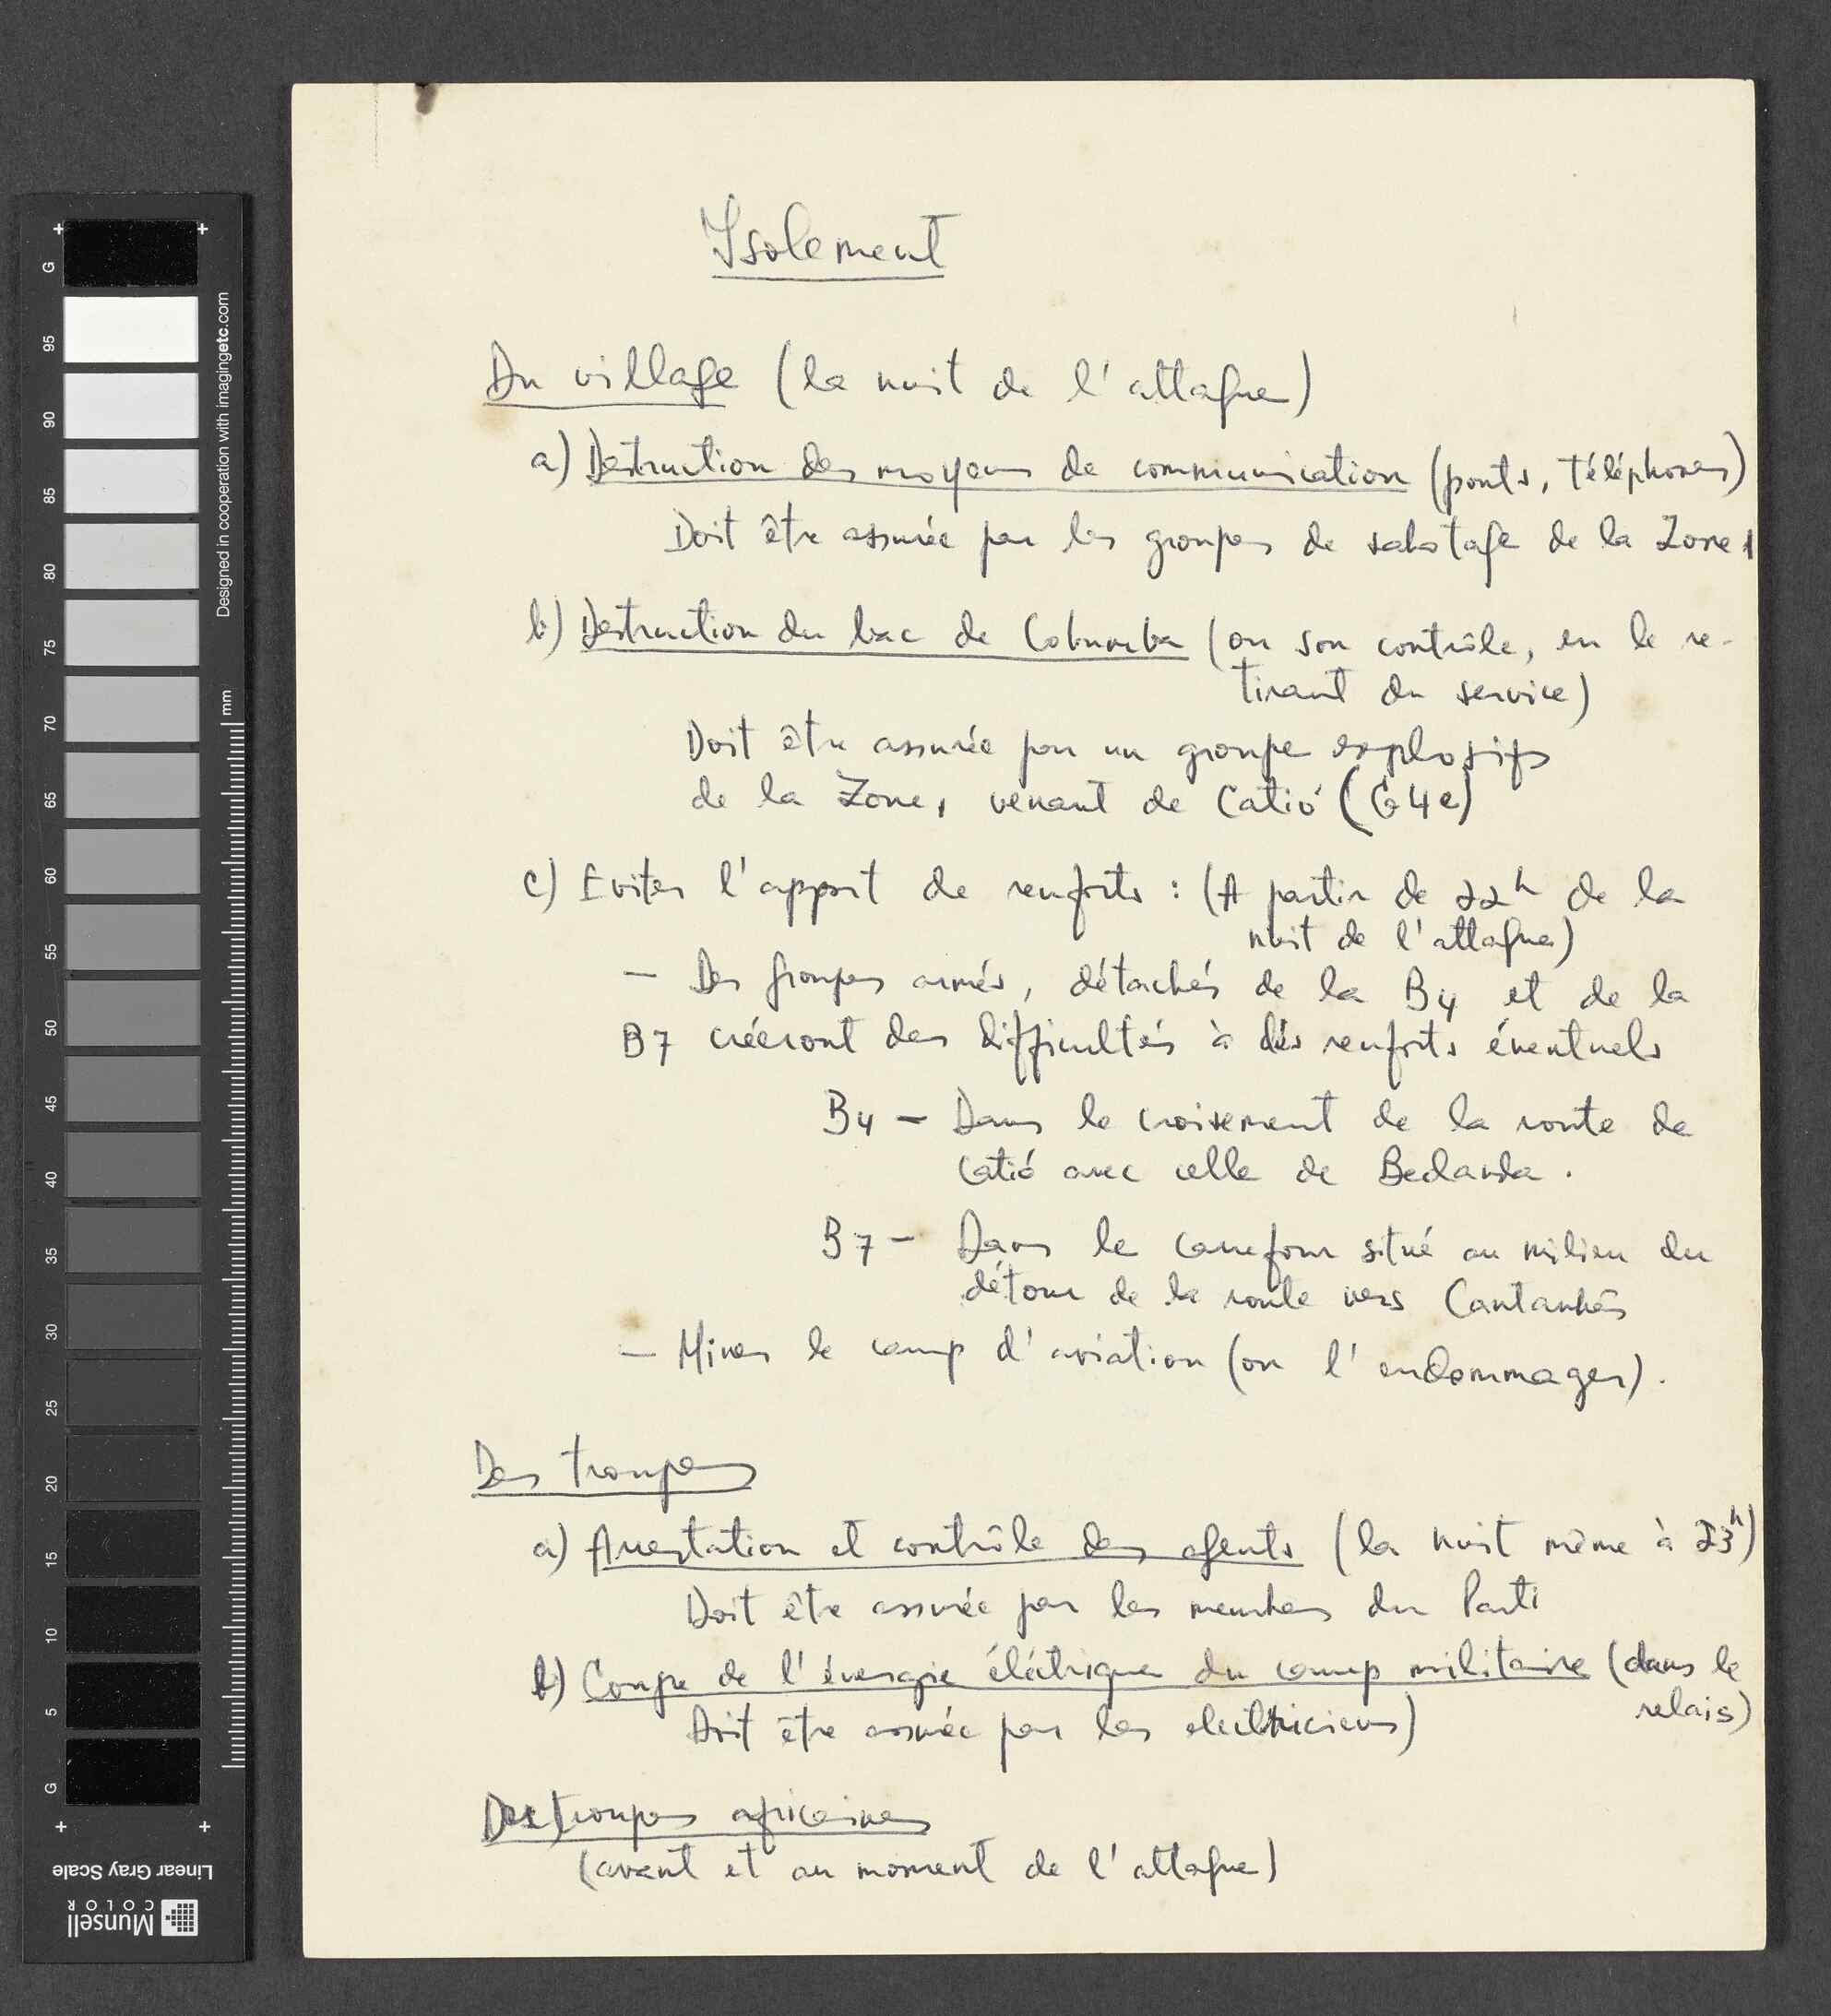 Isolement
Du village (la nuit de l'attaque)
a) Destruction des moyens de communication (ponts, téléphones)
Doit être assurée par les groupes de sabotage de la Zone 1
b) Destruction du bac de (ou son contrôle, en le re-
tirant du service)
Doit être assurée par un groupe explosifs
de la Zone 1 venant de Catió (G4e)
c) Eviter l'apport de renforts : (A partir de 22h de la
nuit de l'attaque)
— Des groupes armés, détachés de la B4 et de la
B7 créeront des difficultés à des renforts éventuels
B4 — Dans le croisement de la route de
Catió avec celle de Bedanda.
B7 — Dans le carrefour situé au milieu du
détour de la route vers Cantanhês
— Miner le camp d'aviation (ou l'endommager).
Des troupes
a) Arrestation et contrôle des agents (la nuit même à 23h)
Doit être assurée par les membres du Parti
b) Coupe de l'énergie éléctrique du camp militaire (dans le
relais)
Doit être assurée par les electriciens)
Des troupes africaines
(avant et au moment de l'attaque)
G
95
90
85
80
75
70
65
60
55
50
45
40
35
30
25
20
15
10
5
G
Designed in cooperation with imagingetc.com
mm
Linear Gray Scale
Munsell
COLOR